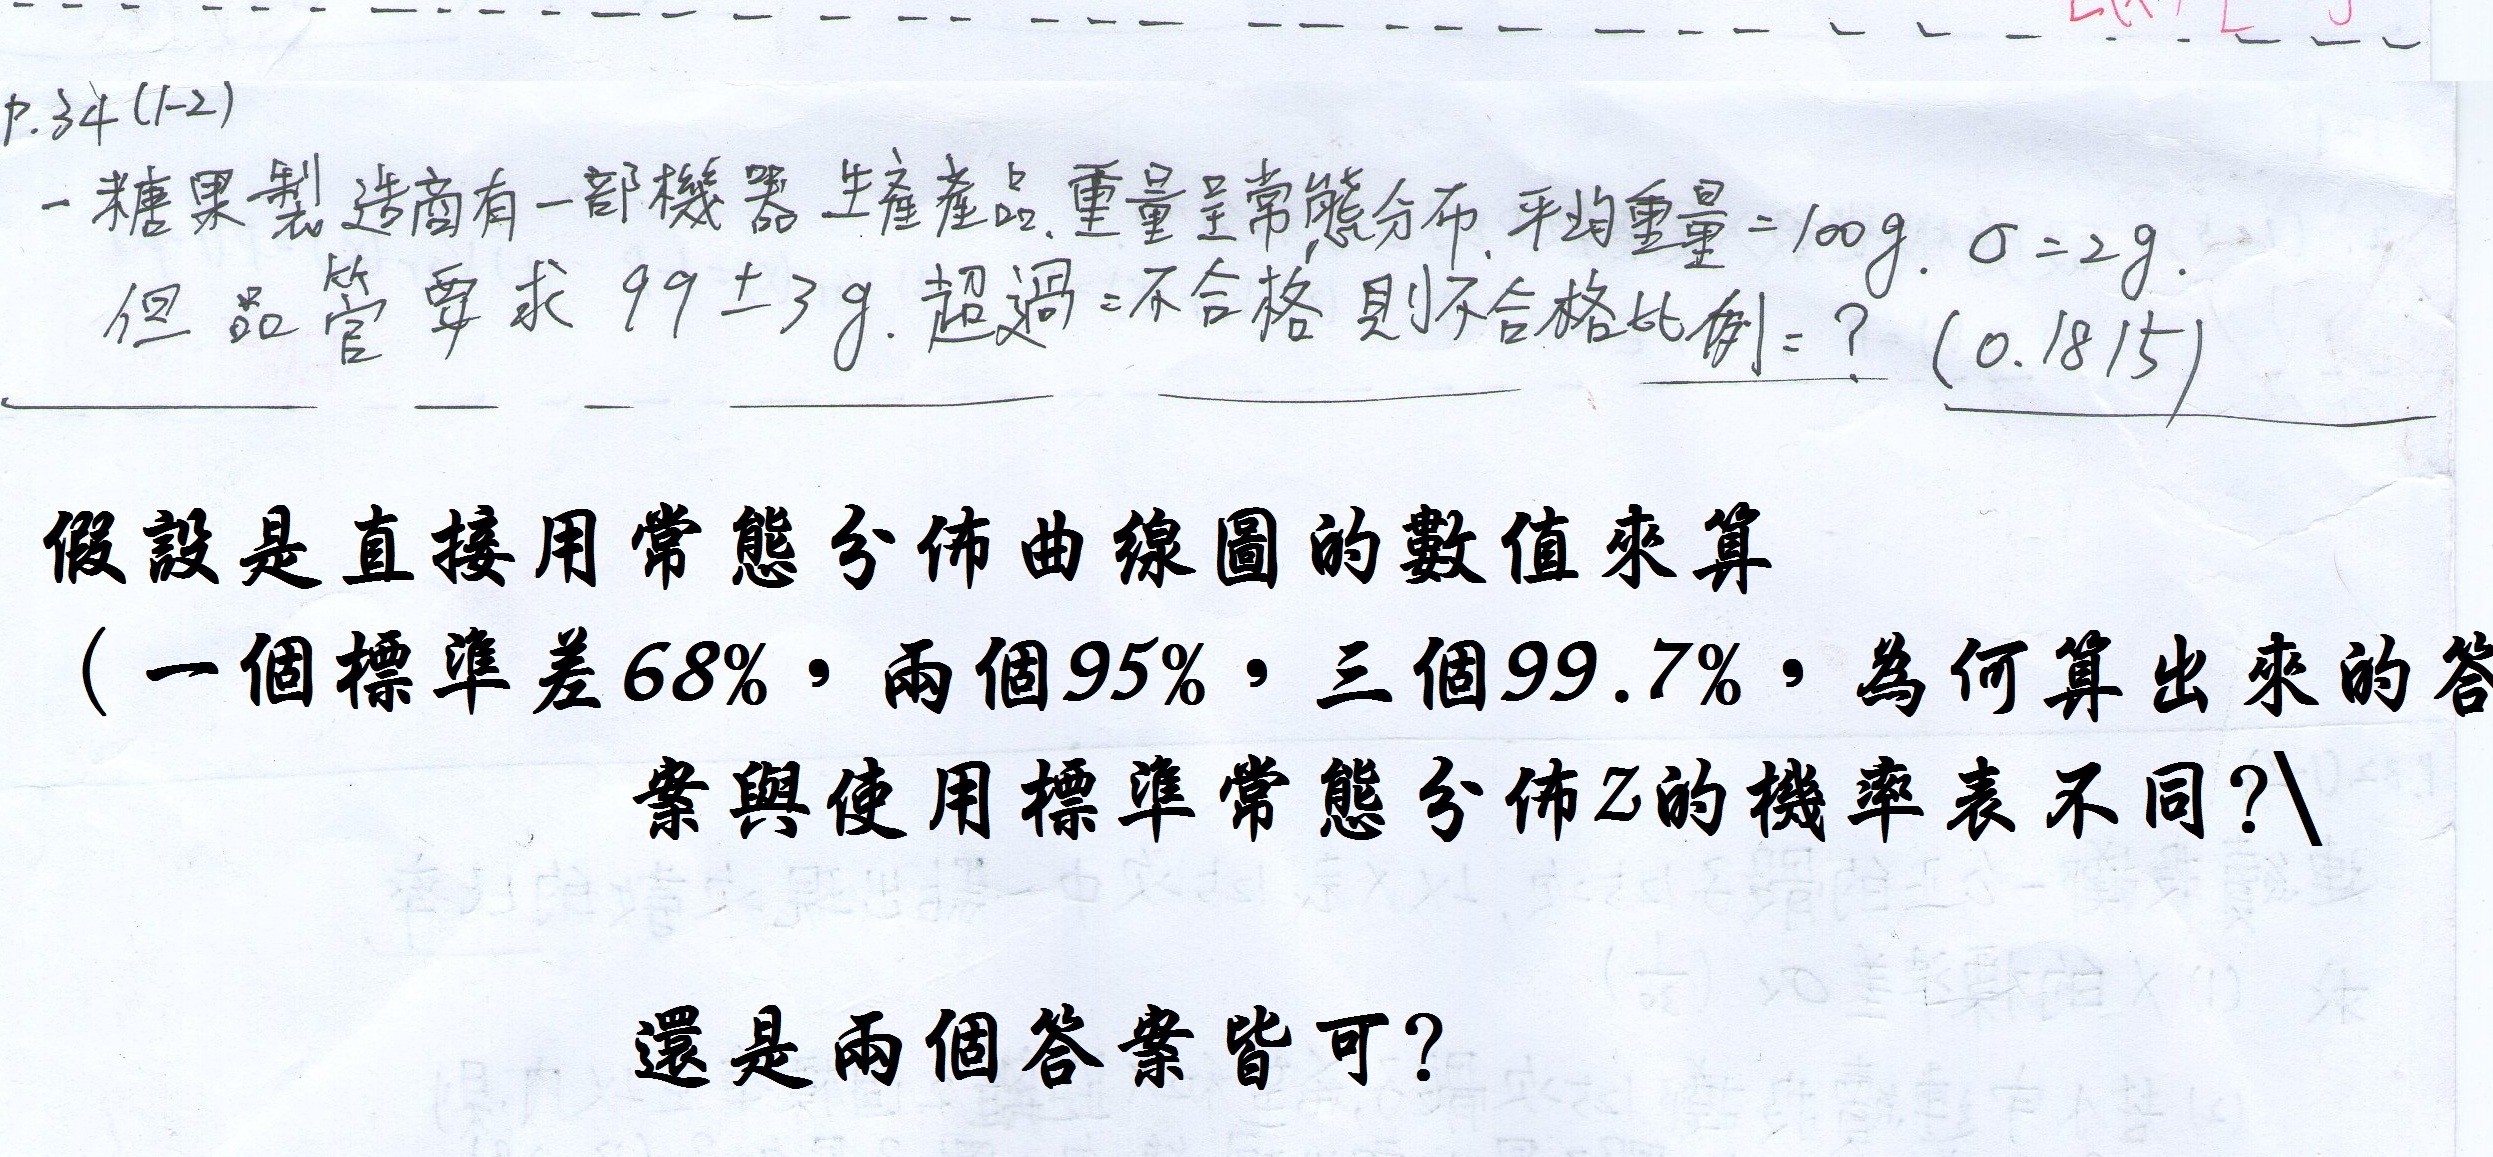 P.34 (1-2)
一糖果製造商有一部機器生產產品.重量呈常態分布.平均重量=100g. σ=2g.
但品管要求 99±3g. 超過=不合格 則不合格比例=? (0.1815)
假設是直接用常態分佈曲線圖的數值來算
(一個標準差68%，兩個95%，三個99.7%，為何算出來的答
案與使用標準常態分佈Z的機率表不同?\
還是兩個答案皆可?